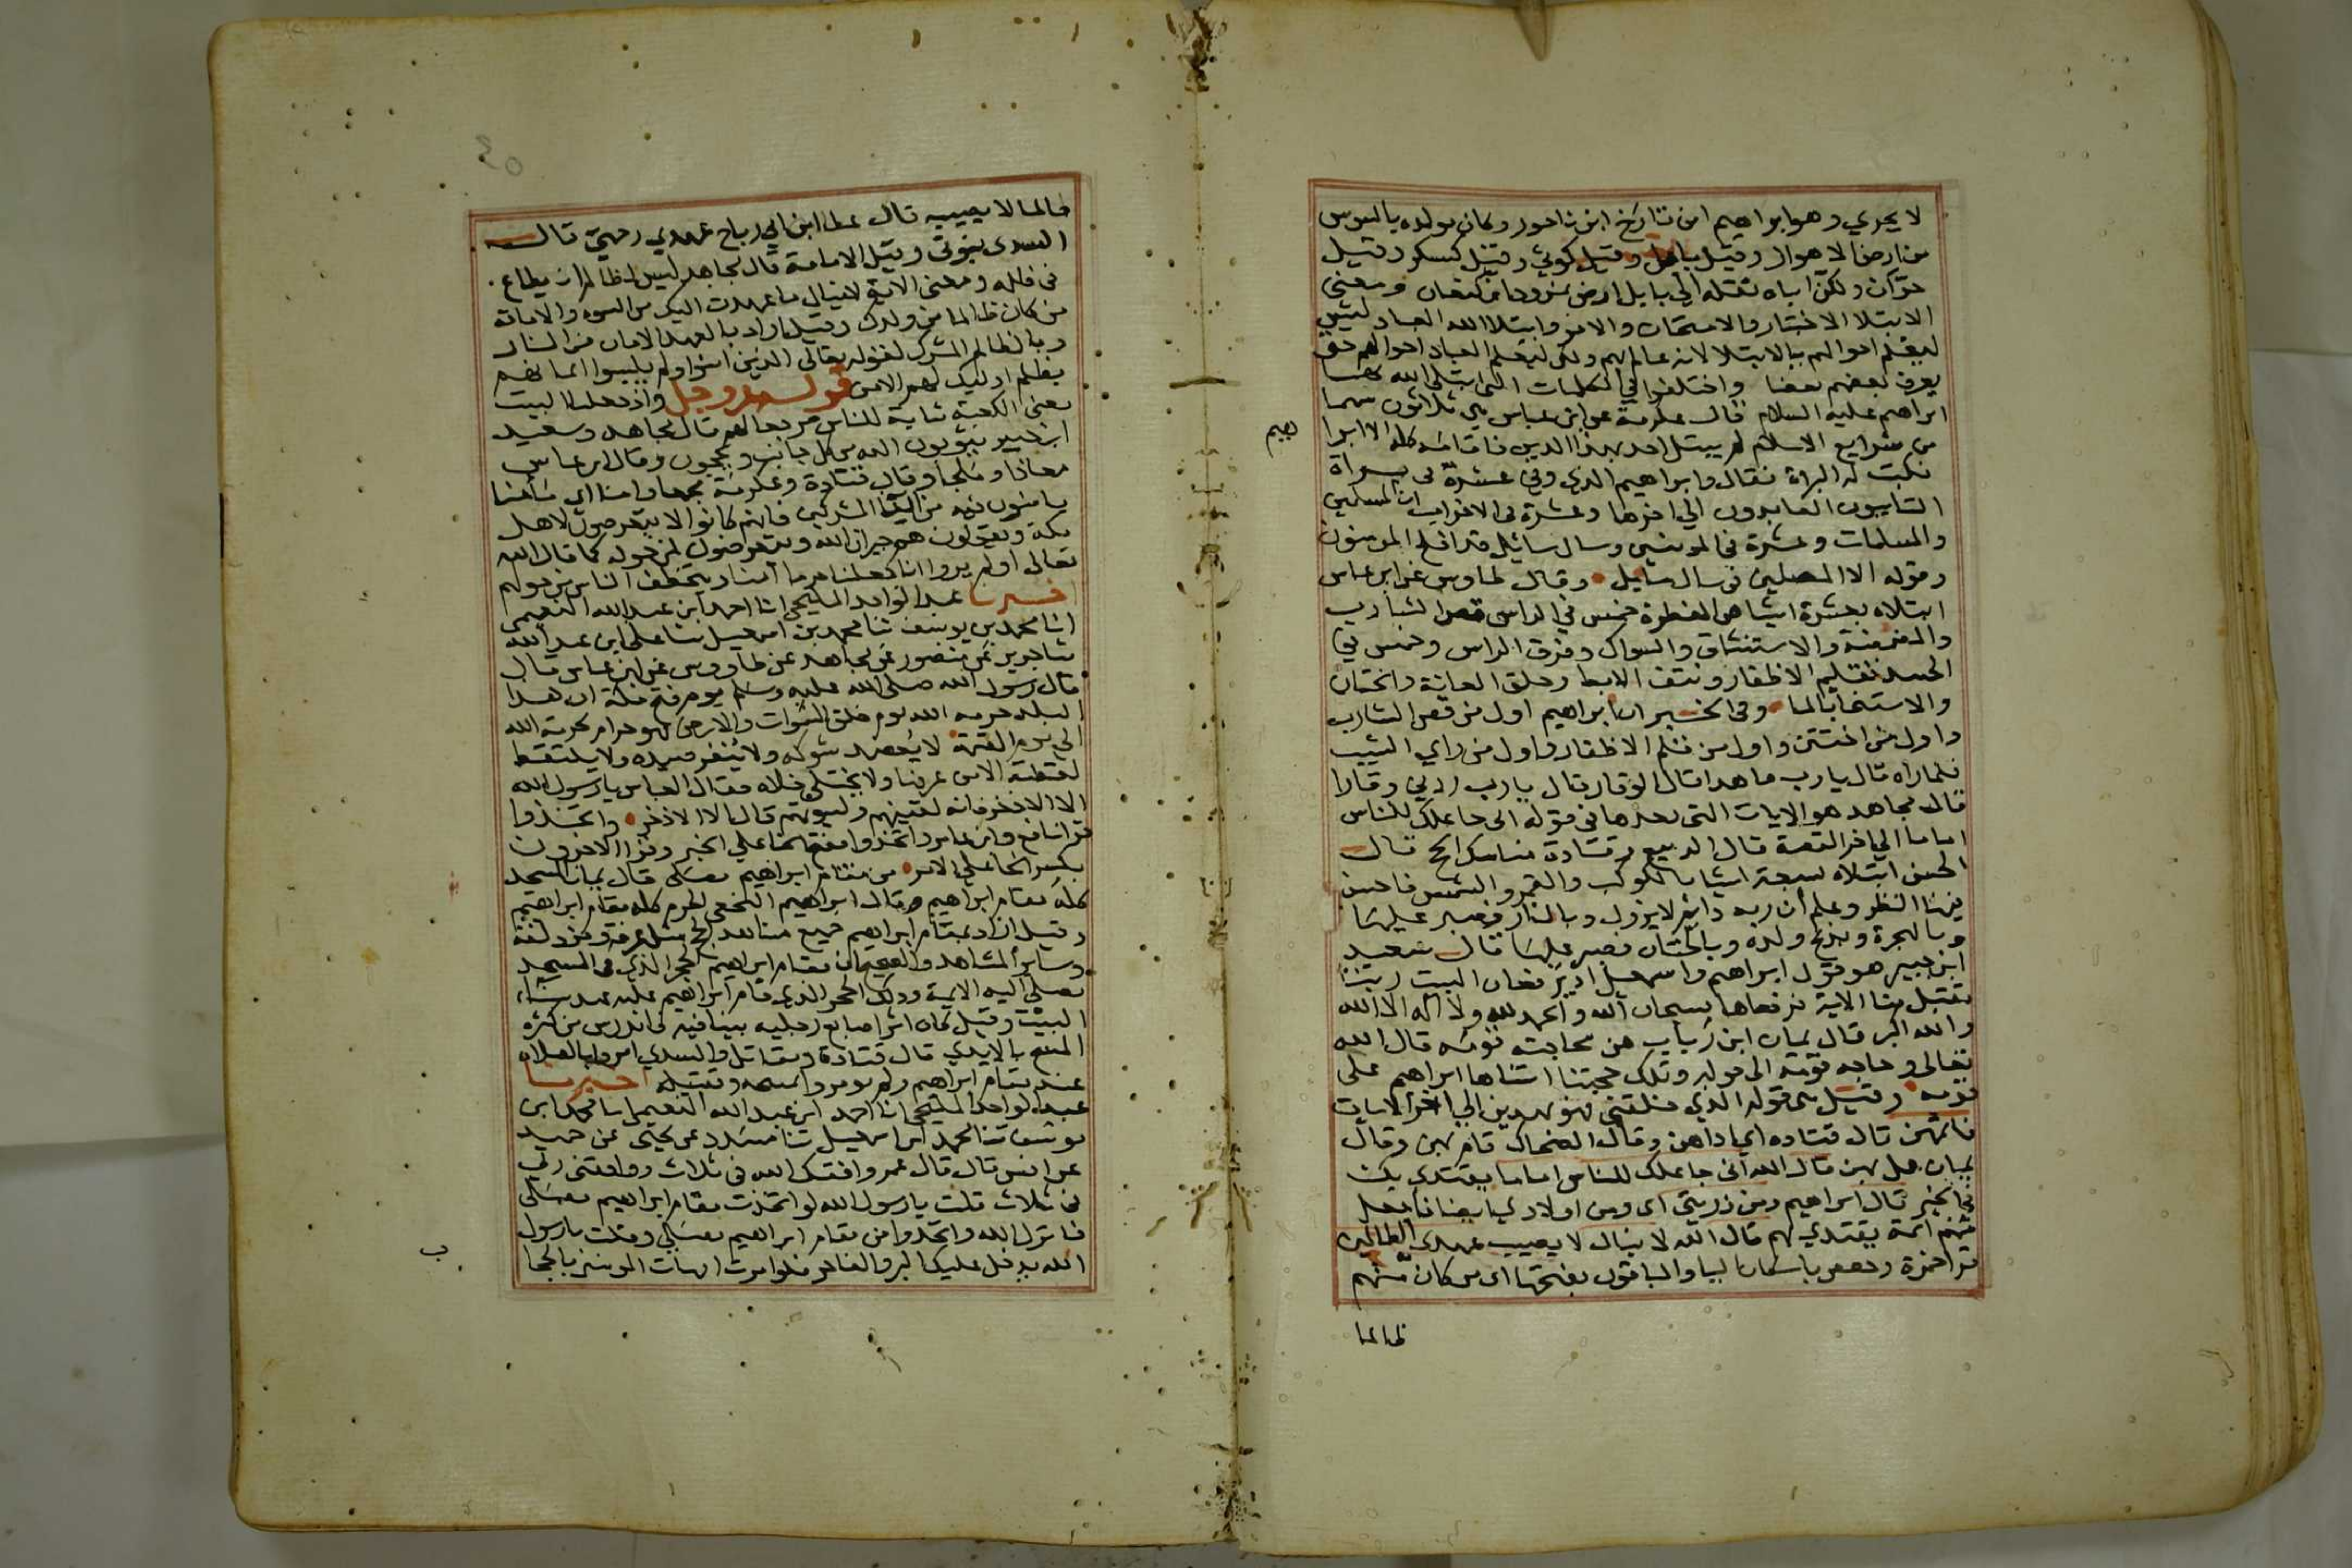 لا يجري وهو ابراهيم ابن تارخ ابن ناحور وكان مولده بالسوس
من ارض الاهواز وقيل بابل وقيل كوثي وقيل كسكر وقيل
حرّان ولكن اباه نقله الي بابل ارض نمروذ ابن كنعان ومعني
الابتلا الاختبار والامتحان والامر وابتلا الله العباد ليس
ليعلم احوالهم بالابتلا لانه عالم بهم ولكن ليعلم العباد احوالهم حتى
يعرف بعضهم بعضا واختلفوا في الكلمات التي ابتلى الله بها
ابراهيم عليه السلام فقال عكرمة عن ابن عباس هي ثلاثون سهما
من شرايع الاسلام لم يبتل احد بهذا الدين فاقامه كله الا ابرا
هيم
فكتب له البراة فقال وابراهيم الذي وفي عشرة في براة
التايبون العابدون الي اخرها وعشرة في الاحزاب ان المسلمين
والمسلمات وعشرة في المومنين وسال سايل قد افلح المومنون
وقوله الا المصلين في سال سايل وقال طاوس عن ابن عباس
ابتلاه بعشرة اشيا هي الفطرة خمس في الراس قص الشارب
والمضمضة والاستنشاق والسواك وفرق الراس وخمس في
الجسد تقليم الاظفار ونتف الابط وحلق العانة والختان
والاستنجا بالما وفي الخبر ان ابراهيم اول من قص الشارب
واول من اختتن واول من قلم الاظفار واول من راي الشيب
فلما راه قال يارب ما هذا قال الوقار قال يارب زدني وقارا
قال مجاهد هو الايات التي بعدها في قوله اني جاعلك للناس
اماما الي اخر القصة قال الربيع وقتادة مناسك الحج قال
الحسن ابتلاه بسبعة اشيا بالكوكب والقمر والشمس فاحسن
فيها النظر وعلم أن ربه دايم لا يزول وبالنار فصبر عليها
وبالهجرة وبذبح ولده وبالختان فصبر عليها قال سعيد
ابن جبير هو قول ابراهيم واسمعيل اذ يرفعان البيت ربنا
تقبل منا الاية فرفعاها بسبحان الله والحمد لله ولا اله الا الله
والله اكبر قال يمان ابن رباب هن محاجته قومه قال الله
تعالى وحاجه قومه الى قوله وتلك حجتنا اتيناها ابراهيم على
قومه وقيل هي قوله الذي خلقني فهو يهدين الي اخر الايات
فاتمهن قال قتاده اي اداهن وقال الضحاك قام بهن وقال
يمان عمل بهن قال الله اني جاعلك للناس اماما يقتدي بك
في الخير قال ابراهيم ومن ذريتي اي ومن اولادي ايضا فاجعل
منهم ائمة يقتدي بهم قال الله لا ينال لا يصيب عهدي الظالمين
قرا حمزة وحفص باسكان اليا والباقون بفتحها اي من كان منهم
ظالما
ظالما لا يصيبه قال عطا ابن ابي رباح عهدي رحمتي قال
السدى نبوتي وقيل الامامة قال مجاهد ليس لظالم ان يطاع
في ظلمه ومعني الاية لا ينال ما عهدت اليك من النبوه والامامة
من كان ظالما من ولدك وقيل اراد بالعهد الامان من النار
وبالظالم المشرك لقوله تعالى الذين امنوا ولم يلبسوا ايمانهم
بظلم اوليك لهم الامن قوله عزوجل واذ جعلنا البيت
يعني الكعبة مثابة للناس مرجعا لهم قال مجاهد وسعيد
ابن جبير يثوبون اليه من كل جانب ويحجون وقال ابن عباس
معاذا وملجأ وقال قتادة وعكرمة مجمعا وامنا اي مأمنا
يامنون فيه من المشركين فانهم كانوا لا يتعرضون لاهل
مكة ويقولون هم جيران الله ويتعرضون لمن حوله كما قال الله
تعالى اولم يروا انا جعلنا حرما آمنا ويتخطف الناس من حولهم
اخبرنا عبد الواحد المليحي انا احمد ابن عبد الله النعيمي
انا محمد بن يوسف ثنا محمد بن اسمعيل ثنا علي ابن عبد الله
ثنا جرير عن منصور عن مجاهد عن طاووس عن ابن عباس قال
قال رسول الله صلى الله عليه وسلم يوم فتح مكة ان هذا
البلد حرمه الله يوم خلق السموات والارض فهو حرام بحرمة الله
الي يوم القيمة لا يعضد شوكه ولا ينفر صيده ولا يلتقط
لقطته الا من عرفها ولا يختلى خلاه فقال العباس يا رسول الله
الا الاذخر فانه لقينهم ولبيوتهم قال الا الاذخر واتخذوا
قرا نافع وابن عامر واتخذوا بفتح الخا علي الخبر وقرا الاخرون
بكسر الخا على الامر من مقام ابراهيم مصلى قال يمان المسجد
كله مقام ابراهيم وقال ابراهيم النخعي الحرم كله مقام ابراهيم
وقيل اراد بمقام ابراهيم جميع مشاهد الحج مثل عرفة ومزدلفة
وسائر المشاهد والصحيح ان مقام ابراهيم الحجر الذي في المسجد
يصلي اليه الايمة وذلك الحجر الذي قام ابراهيم عليه عند بناء
البيت وقيل كان اثر اصابع رجليه بينا فيه فاندرس من كثرة
المسح بالايدي قال قتادة ومقاتل والسدي امروا بالصلاه
عند مقام ابراهيم ولم يومروا بمسحه وتقبيله اخبرنا
عبد الواحد المليحي انا احمد ابن عبد الله النعيمي انا محمد ابن
يوسف ثنا محمد ابن اسمعيل ثنا مسدد عن يحيى عن حميد
عن انس قال قال عمر وافقت الله في ثلاث ووافقني ربي
في ثلاث قلت يا رسول الله لو اتخذت مقام ابراهيم مصلى
فانزل الله واتخذوا من مقام ابراهيم مصلي وقلت يا رسول
الله يدخل عليك البر والفاجر فلو امرت امهات المومنين بالحجا
ب